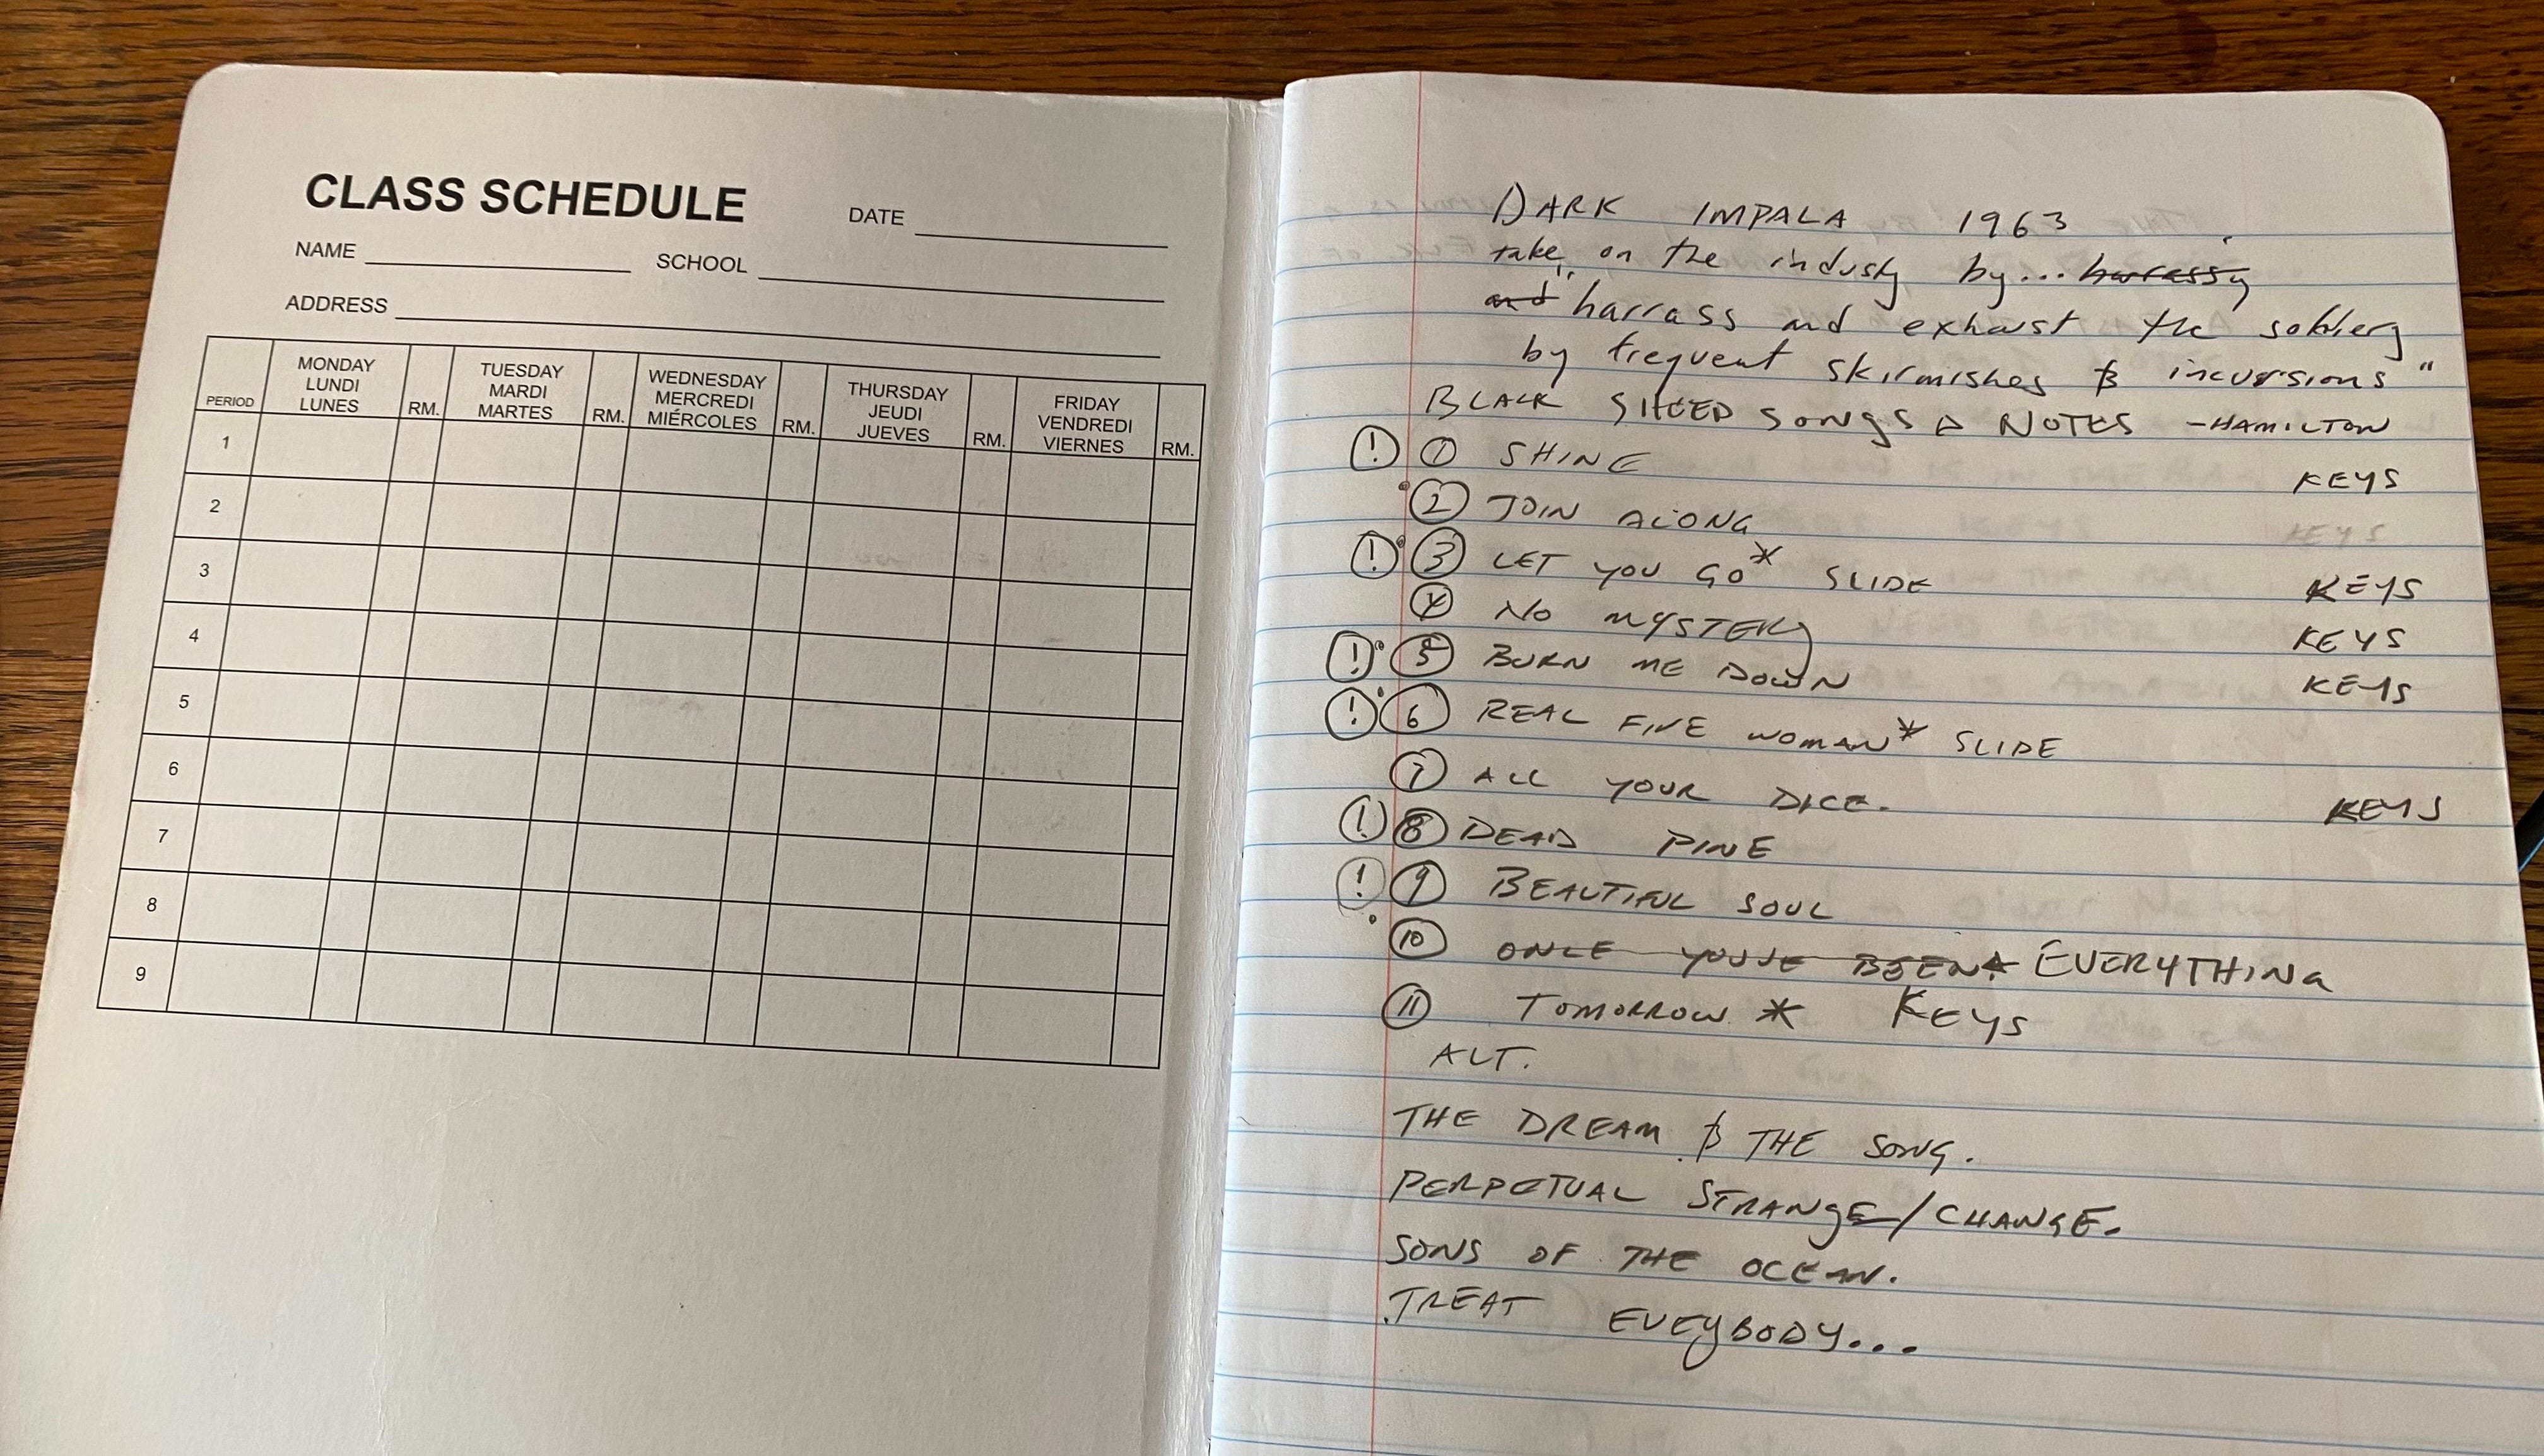 CLASS SCHEDULE
DATE
NAME SCHOOL
ADDRESS
PERIOD MONDAY LUNDI LUNES RM. TUESDAY MARDI MARTES RM. WEDNESDAY MERCREDI MIÉRCOLES RM. THURSDAY JEUDI JUEVES RM. FRIDAY VENDREDI VIERNES RM.
1
2
3
4
5
6
7
8
9
DARK IMPALA 1963
take on the industy by...
and "harrass and exhaust the soldiery
by frequent skirmishes & incursions"
BLACK SHEEP SONGS & NOTES -HAMILTON
! 1 SHINE KEYS
2 JOIN ALONG KEYS
! 3 LET YOU GO* SLIDE KEYS
4 NO MYSTERY KEYS
! 5 BURN ME DOWN KEYS
! 6 REAL FINE WOMAN* SLIDE
7 ALL YOUR DICE. KEYS
! 8 DEAD PINE
! 9 BEAUTIFUL SOUL
10 ONCE YOU'VE BEEN EVERYTHING
11 TOMORROW * KEYS
ALT.
THE DREAM & THE SONG.
PERPETUAL STRANGE/CHANGE.
SONS OF THE OCEAN.
TREAT EVEYBODY...